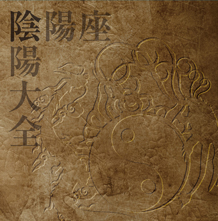 陰陽座
陰陽大全